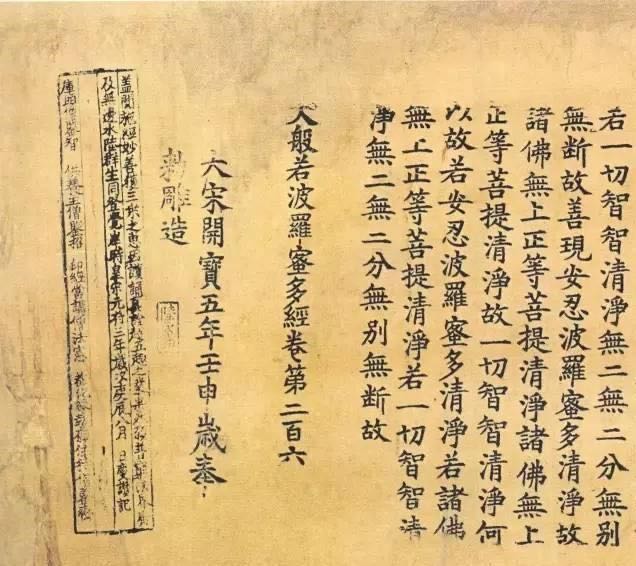 若一切智智清淨無二無二分無別
無斷故善現安忍波羅蜜多清淨故
諸佛無上正等菩提清淨諸佛無上
正等菩提清淨故一切智智清淨何
以故若安忍波羅蜜多清淨若諸佛
無上正等菩提清淨若一切智智清
淨無二無二分無別無斷故
大般若波羅蜜多經卷第二百六
大宋開寶五年壬申歲奉
勅雕造
蓋聞施經妙善獲三乘之惠因讚誦真詮超五趣之業果
及無邊水陸群生同登覺岸時皇宋元符三年歲次庚辰八月 日慶讚記
庫頭僧鑒智 供養主僧鑒招 印經當講僧法憲